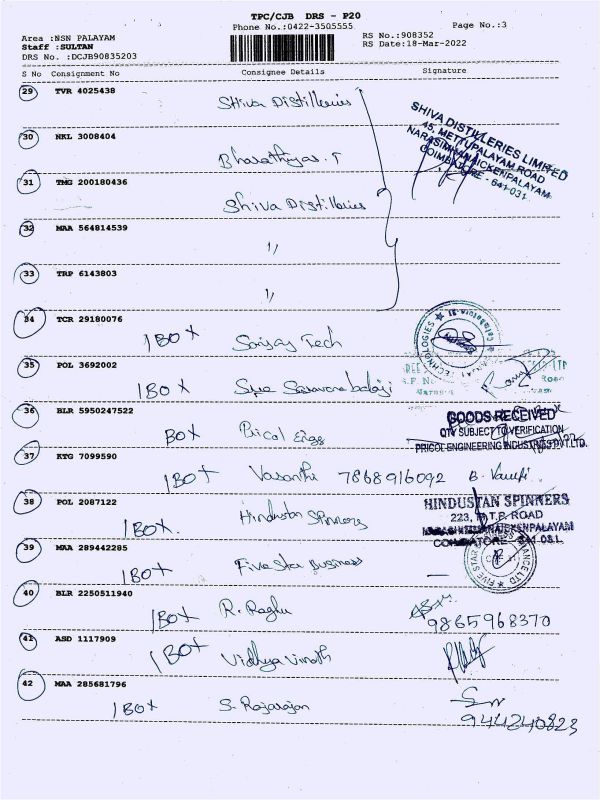 TPC/CJB DRS - P20
Phone No.:0422-3505555
Page No.:3
Area :NSN PALAYAM
Staff :SULTAN
DRS No. :DCJB90835203
RS No.:908352
RS Date:18-Mar-2022
S No Consignment No Consignee Details Signature
29 TVR 4025438
Shiva Distilleries
SHIVA DISTILLERIES LIMITED
45, METTUPALAYAM ROAD
NARASIMHANAICKENPALAYAM
COIMBATORE - 641 031.
30 NKL 3008404
Bharathiyar. T
31 TMG 200180436
Shiva Distilleries
32 MAA 564814539
"
33 TRP 6143803
"
34 TCR 29180076
1 BOX Sanjay Tech
TECHNOLOGIES
35 POL 3692002
1 BOX Saravana balaji
36 BLR 5950247522
BOX Pricol Engg
GOODS RECEIVED
QTY SUBJECT TO VERIFICATION
PRICOL ENGINEERING INDUSTRIES PVT.LTD.
37 KTG 7099590
1 BOX Vasanthi 7868916092
38 POL 2087122
1 BOX. Hindustan Spinners
HINDUSTAN SPINNERS
223, M.T.P. ROAD
COIMBATORE - 641 031.
39 MAA 289442285
1 BOX Five Star Business
FIVE STAR BUSINESS FINANCE LTD
40 BLR 2250511940
1 BOX R. Raghu
9865968370
41 ASD 1117909
1 BOX Vidhya vinoth
42 MAA 285681796
1 BOX S. Rajarajan
944240823